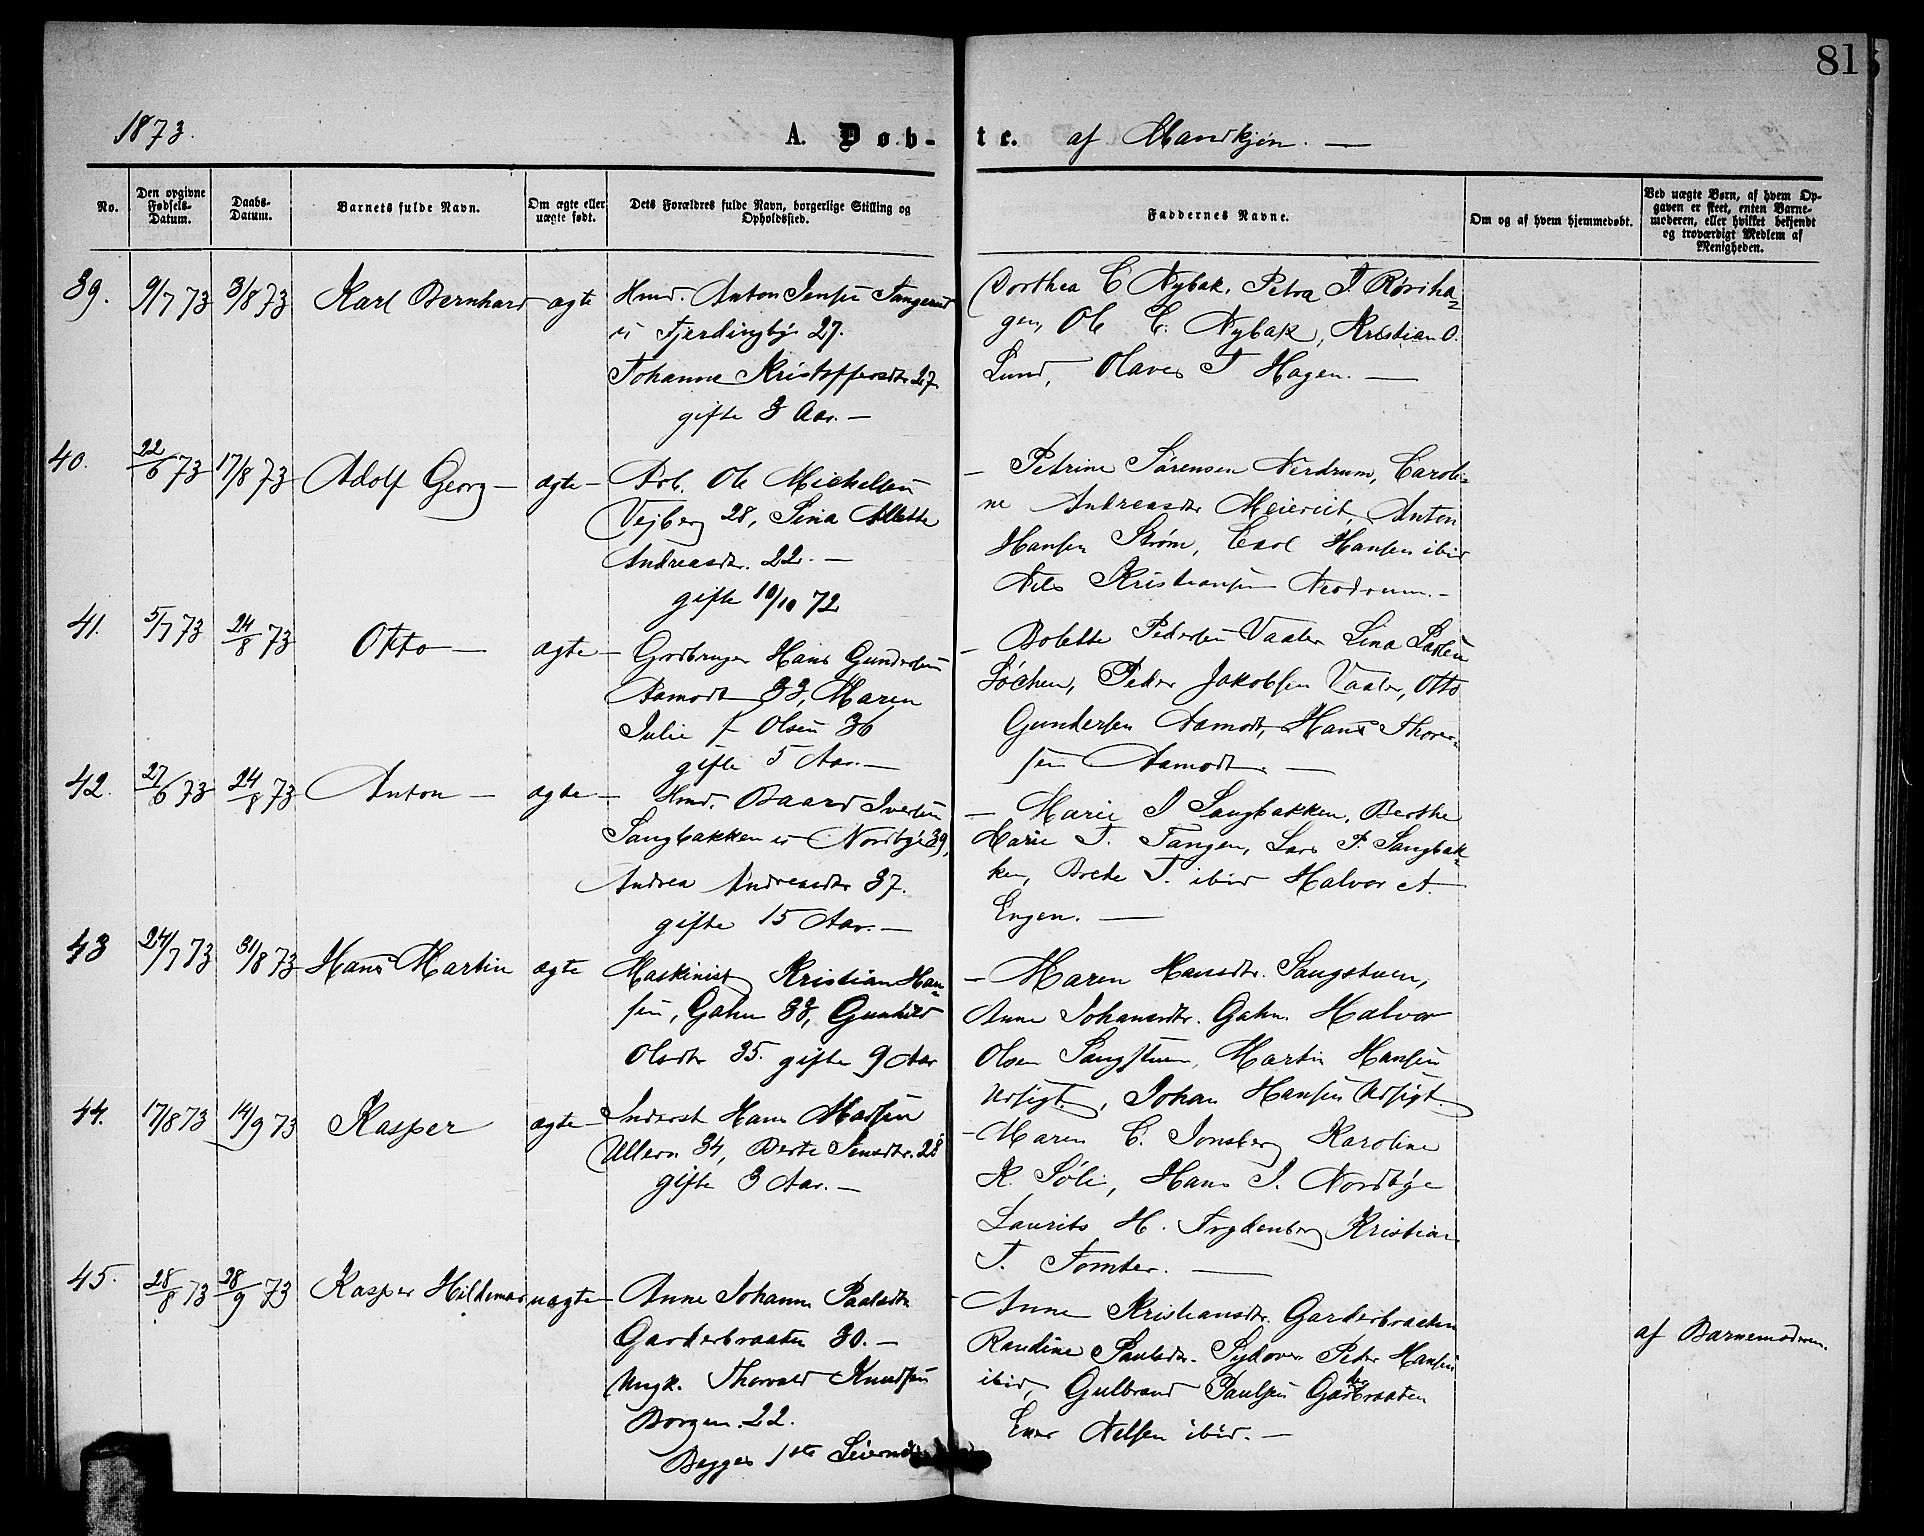 81
1873.
A. Døb-
te. af Mandkjøn. —
No.
Den opgivne Fødsels-Datum.
Daabs-Datum.
Barnets fulde Navn.
Om ægte eller uægte født.
Dets Forældres fulde Navn, borgerlige Stilling og Opholdssted.
Faddernes Navne.
Om og af hvem hjemmedøbt.
Ved uægte Børn, af hvem Opgaven er skeet, enten Barnemoderen, eller hvilket bekjendt og troværdigt Medlem af Menigheden.
39. 9/7 73 3/8 73 Karl Bernhard ægte
Hmd. Anton Jensen Tangerud
u Fjerdingby 27.
Johanne Kristoffersdtr. 27
gifte 3 Aar. —
Dorthea C Nybak, Petra J. Røviha=
gen, Ole C. Nybak, Kristian O.
Lund, Olaves T Hagen. —
40. 22/6 73 17/8 73 Adolf Georg — ægte —
Arb. Ole Mickelsen
Vejberg 28, Lina Alette
Andreasdtr. 22. —
gifte 10/10 72
— Petrine Sørensen Nerdrum, Caroli=
ne Andreasdtr Meieriet, Anton
Hansen Strøm, Carl Hansen ibid
Nils Kristiansen Nerdrum. —
41. 5/7 73 24/8 73 Otto — ægte —
Grdbruger Hans Gundersen
Aamodt 33, Maren
Julie f Olsen 36
gifte 5 Aar. —
— Bolette Pedersen Vaaler Lina Larsen
Løchen, Peder Jakobsen Vaaler, Otto
Gundersen Aamodt, Hans Thorer=
sen Aamodt. —
42. 27/6 73 24/8 73 Anton — ægte —
Hmd. Baard Iversen
Sangbakken u Nordbye 39,
Andrea Andreasdtr 37.
gifte 15 Aar. —
— Marie I Sangbakken, Berthe
Marie T. Tangen, Lars P. Sangbak=
ken, Brede T. ibid Halvor A.
Engen. —
43 24/7 73 31/8 73 Hans Martin ægte
Maskinist Kristian Han=
sen, Gahn 33, Gunhild
Olsdtr 35. gifte 9 Aar
— Maren Hansdtr. Sangstuen,
Anne Johansdtr. Gahn. Halvor
Olsen Sangstuen, Martin Hansen
Udsigt, Johan Hansen Udsigt
44. 17/8 73 14/9 73 Kasper ægte —
Inderst Hans Madsen
Ullern 34, Berte Jensdtr. 28
gifte 3 Aar. —
— Maren C. Jonsberg Karoline
K. Søli, Hans J. Nordbye
Laurits H. Frydenberg Kristian
T. Tomter. —
45. 28/8 73 28/9 73 Kasper Hildemar uægte —
Anne Johanne Paalsdtr
Garderbraaten 30. —
Ungk. Thorvald Knudsen
Borgen 22.
Begges 1ste Leiermaal
Anne Kristiansdtr. Garderbraaten
Randine Paulsdtr. Sydover Peder Hansen
ibid, Gulbrand Paulsen Garderbraaten
Ener Nelsen ibid. —
af Barnemoderen.